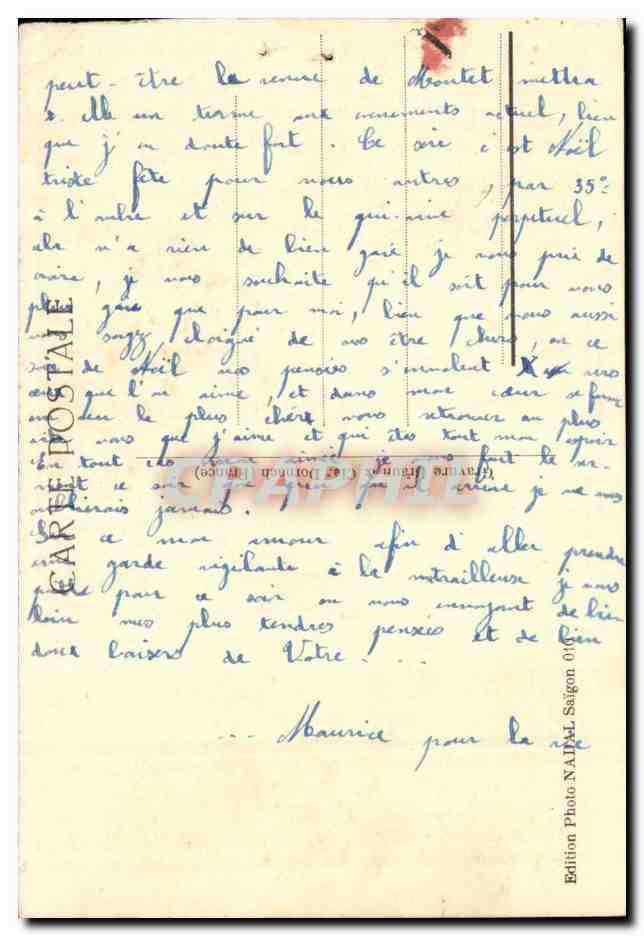 peut-être la venue de Moutet mettra
un terme aux evenements actuel, bien
que j'en doute fort. Ce soir c'est Noël
triste fête pour nous autres, par 35°
à l'ombre et sur le qui-vive perpetuel,
n'a rien de bien gai je vous prie de
croire, je vous souhaite qu'il soit pour vous
plus gaie que pour moi, bien que vous aussi
vous soyez éloigné de vos être chers, en ce
soir de Noël nos pensées s'envolent vers
ceux que l'on aime, et dans mon cœur se forme
un vœu le plus cher vous retrouver au plus
vite vous que j'aime et qui êtes tout mon espoir
En tout cas mon aimée je vous fait le ser-
ment ce soir que quoi qu'il arrive je ne vous
oublierais jamais.
Sur ce mon amour afin d'aller prendre
une garde vigilante à la mitrailleuse je vous
quitte pour ce soir en vous envoyant de bien
loin mes plus tendres pensées et de bien
doux baisers de Votre ....
... Maurice pour la vie
CARTE POSTALE
Gravure Braun & Cie, Dornach (France)
Edition Photo NADAL Saïgon 016
CPAPHIL